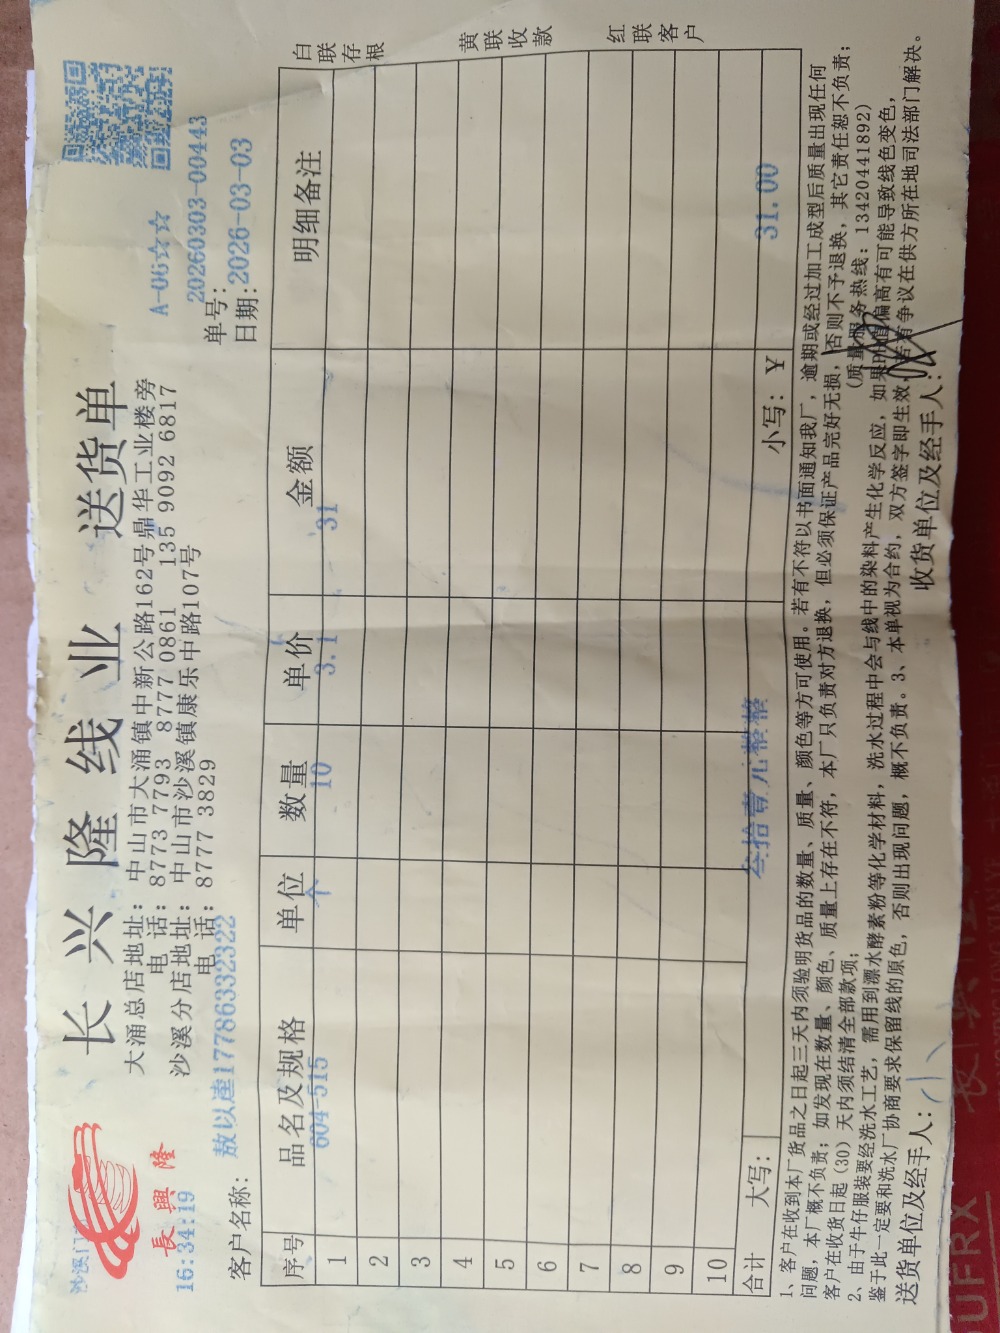 沙溪门
長興隆
16:34:19
长兴隆线业 送货单
大涌总店地址：中山市大涌镇中新公路162号鼎华工业楼旁
电 话：8773 7793 8777 0861 135 9092 6817
沙溪分店地址：中山市沙溪镇康乐中路107号
电 话：8777 3829
A-06☆☆☆
单号：20260303-00443
日期：2026-03-03
客户名称：敖以達17786332322
序号 品名及规格 单位 数量 单价 金额 明细备注
1 604-515 个 10 3.1 31
2
3
4
5
6
7
8
9
10
合计 大写：叁拾壹元整整 小写：￥ 31.00
白联存根
黄联收款
红联客户
1、客户在收到本厂货品之日起三天内须验明货品的数量、质量、颜色等方可使用。若有不符以书面通知我厂，逾期或经过加工成型后质量出现任何
问题，本厂概不负责；如发现在数量、颜色、质量上存在不符，本厂只负责对方退换，但必须保证产品完好无损，否则不予退换，其它责任恕不负责；
客户在收货日起（30）天内须结清全部款项； （质量服务热线：13420441892）
2、由于牛仔服装要经洗水工艺，需用到漂水酵素粉等化学材料，洗水过程中会与线中的染料产生化学反应，如果 值偏高有可能导致线色变色，
鉴于此一定要和洗水厂协商要求保留线的原色，否则出现问题，概不负责。3、本单视为合约，双方签字即生效，若有争议在供方所在地司法部门解决。
送货单位及经手人： 收货单位及经手人：
UFRX